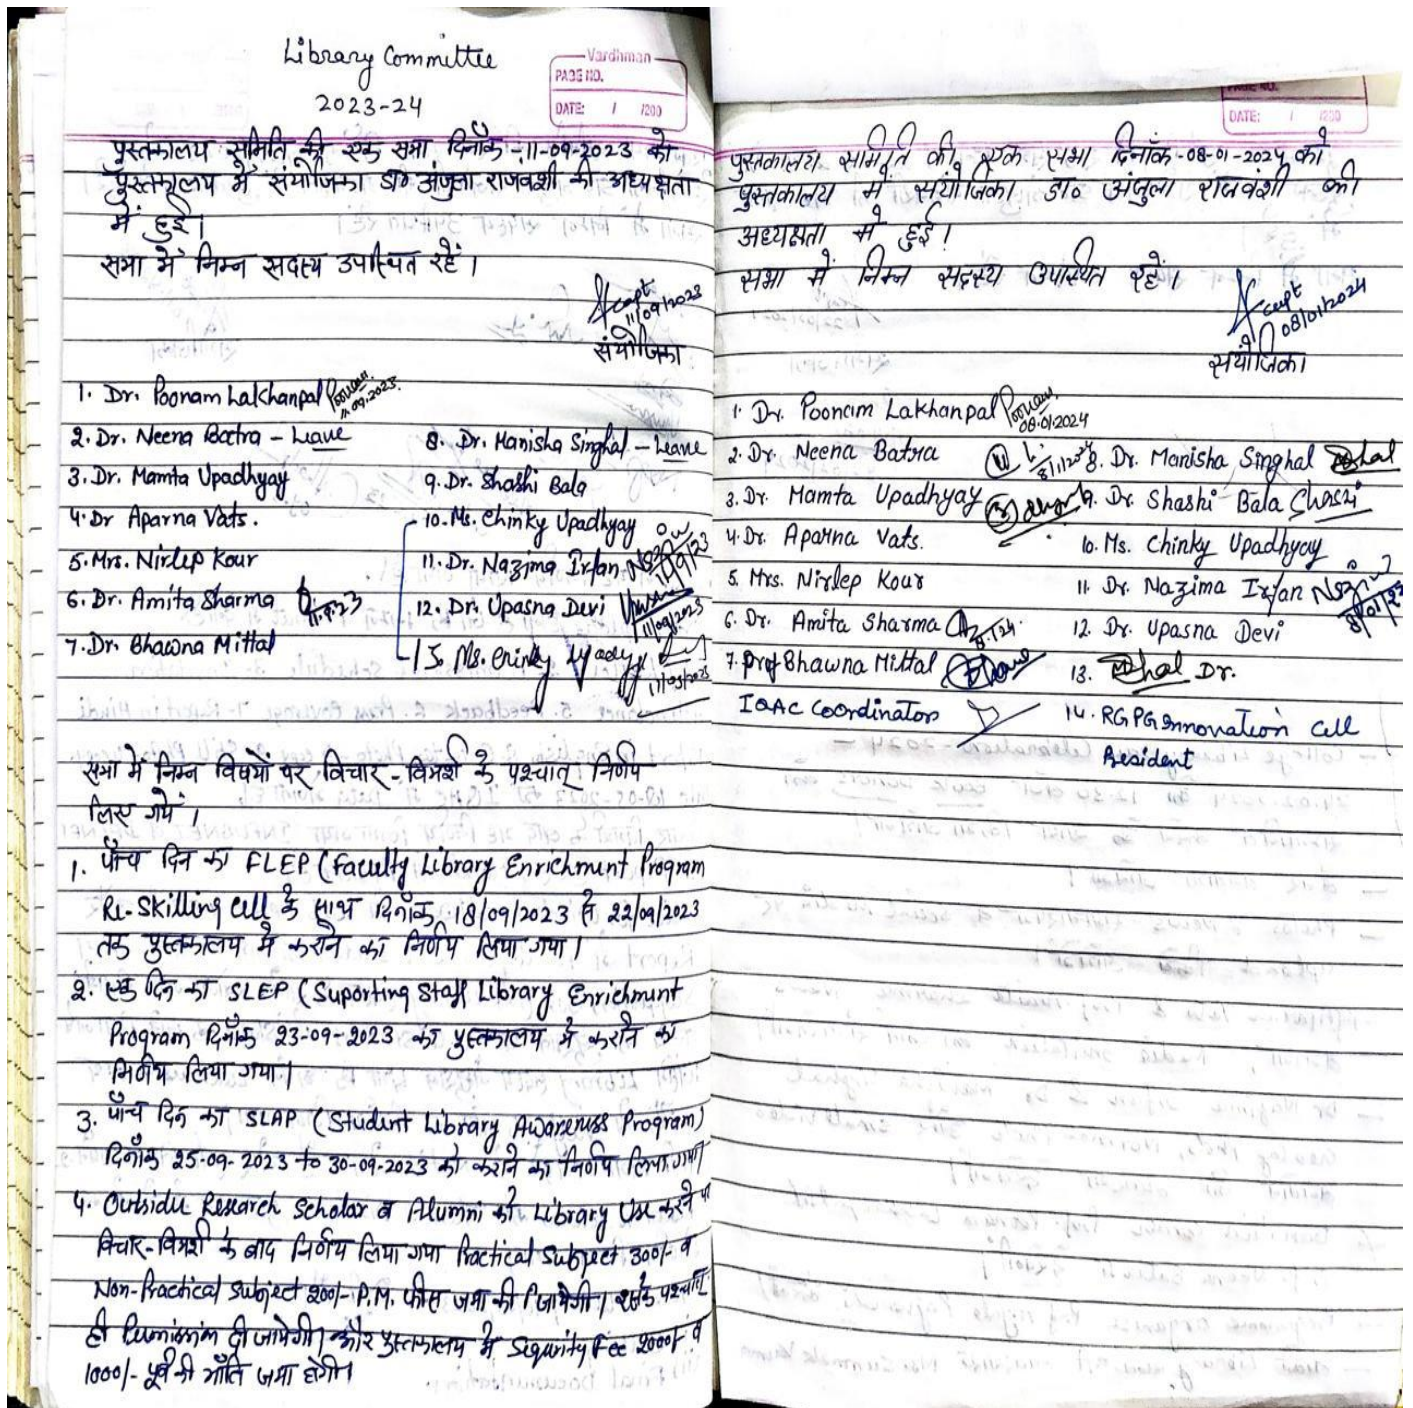 Library Committee
2023-24
Vardhman
PAGE NO.
DATE: / /200
पुस्तकालय समिति की एक सभा दिनाँक-11-09-2023 को
पुस्तकालय में संयोजिका डा० अंजुला राजवंशी की अध्यक्षता
में हुई।
सभा में निम्न सदस्य उपस्थित रहें।
11/09/2023
संयोजिका
1. Dr. Poonam Lakhanpal Poonam 11.09.2023
2. Dr. Neena Batra - Leave
3. Dr. Mamta Upadhyay
4. Dr Aparna Vats.
5. Mrs. Nirlep Kour
6. Dr. Amita Sharma 11.9.23
7. Dr. Bhawna Mittal
8. Dr. Manisha Singhal - Leave
9. Dr. Shashi Bala
10. Ms. Chinky Upadhyay
11. Dr. Nazima Irfan 11/9/23
12. Dr. Upasna Devi 11/09/2023
13. Ms. Chinky Upadhyay
सभा में निम्न विषयों पर विचार-विमर्श के पश्चात् निर्णय
लिए गये।
1. पाँच दिन का FLEP (Faculty Library Enrichment Program
Re-Skilling Cell के साथ दिनाँक 18/09/2023 से 22/09/2023
तक पुस्तकालय में कराने का निर्णय लिया गया।
2. एक दिन का SLEP (Suporting Staff Library Enrichment
Program दिनाँक 23-09-2023 को पुस्तकालय में कराने का
निर्णय लिया गया।
3. पाँच दिन का SLAP (Student Library Awareness Program)
दिनाँक 25-09-2023 to 30-09-2023 को कराने का निर्णय लिया गया
4. Outside Research Scholar व Alumni को Library Use करने पर
विचार-विमर्श के बाद निर्णय लिया गया Practical Subject 300/- व
Non-Practical Subject 200/- P.M. फीस जमा की जायेगी। इसके पश्चात्
ही Permission दी जायेगी। और पुस्तकालय में Sequrity Fee 2000/- व
1000/- पूर्व की भाँति जमा होगी।
PAGE NO.
DATE: / /200
पुस्तकालय समिति की एक सभा दिनाँक-08-01-2024 को
पुस्तकालय में संयोजिका डा० अंजुला राजवंशी की
अध्यक्षता में हुई।
सभा में निम्न सदस्य उपस्थित रहें।
08/01/2024
संयोजिका
1. Dr. Poonam Lakhanpal Poonam 08.01.2024
2. Dr. Neena Batra 8/1/2024
3. Dr. Mamta Upadhyay
4. Dr. Aparna Vats.
5. Mrs. Nirlep Kour
6. Dr. Amita Sharma
7. Prof Bhawna Mittal
IQAC Coordinator
8. Dr. Manisha Singhal
9. Dr. Shashi Bala Shashi
10. Ms. Chinky Upadhyay
11. Dr. Nazima Irfan
12. Dr. Upasna Devi
13. Dr.
14. RGPG Innovation Cell
President